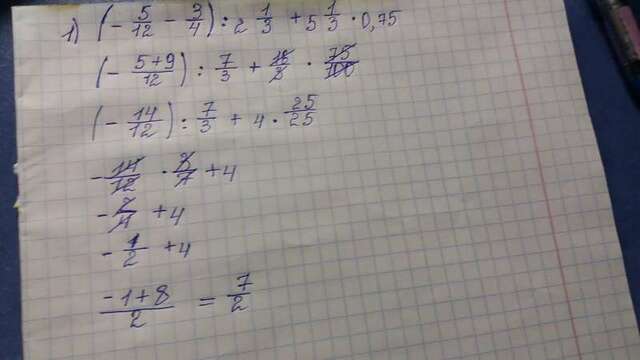 1) (- 5/12 - 3/4) : 2 1/3 + 5 1/3 · 0,75
(- 5+9/12) : 7/3 + 16/3 · 75/100
(- 14/12) : 7/3 + 4 · 25/25
- 14/12 · 3/7 + 4
- 2/4 + 4
- 1/2 + 4
-1+8/2 = 7/2